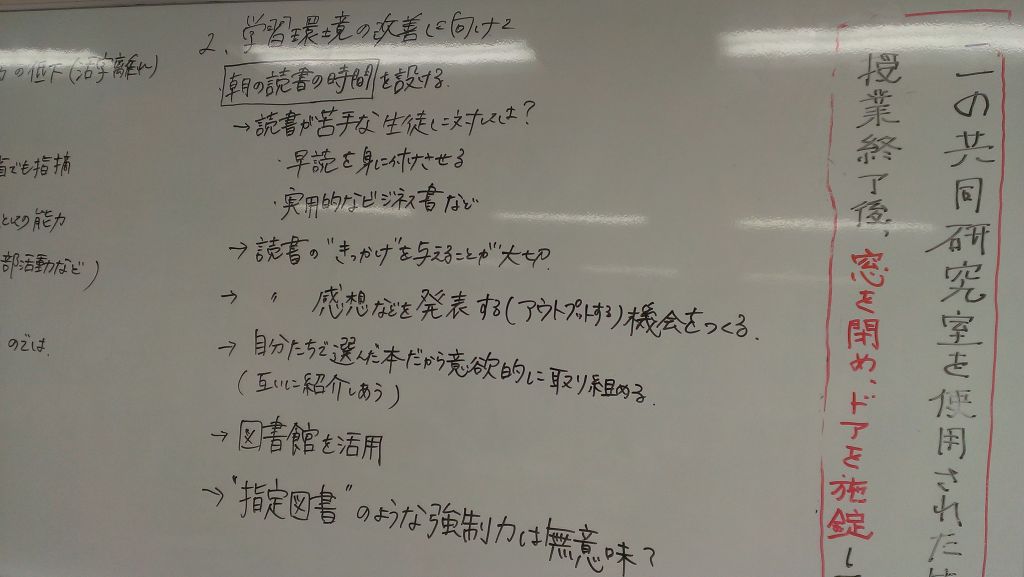 の低下(活字離れ)
でも指摘
としての能力
部活動など)
のでは.
2、学習環境の改善に向けて
朝の読書の時間を設ける.
→読書が苦手な生徒に対しては?
・早読を身に付けさせる
・実用的なビジネス書など
→読書の"きっかけ"を与えることが大切.
→ 〃 感想などを発表する(アウトプットする)機会をつくる.
→自分たちで選んだ本だから意欲的に取り組める.
(互いに紹介しあう)
→図書館を活用
→"指定図書"のような強制力は無意味?
一の共同研究室を使用された
授業終了後、窓を閉め、ドアを施錠し